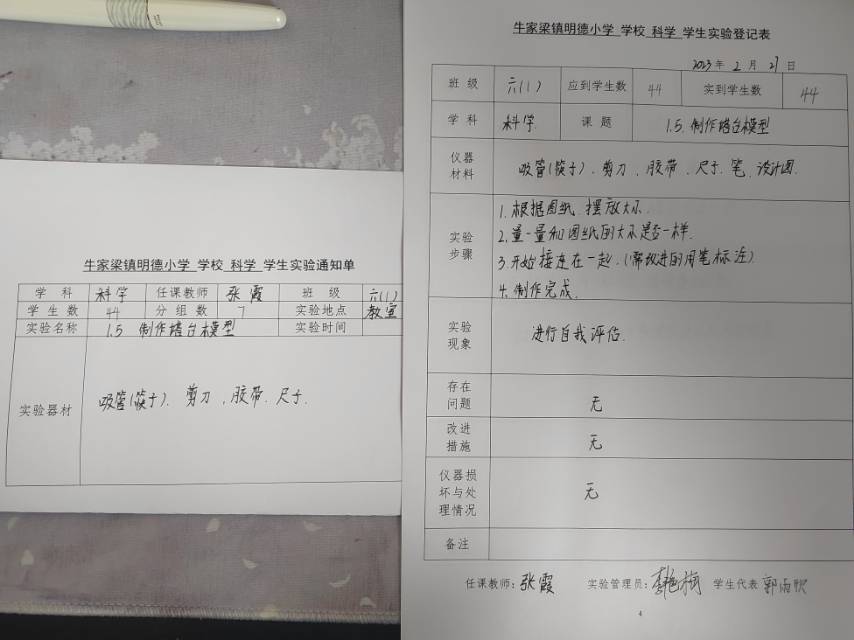 牛家梁镇明德小学 学校 科学 学生实验通知单
学 科 科学 任课教师 张霞 班 级 六(1)
学 生 数 44 分 组 数 7 实验地点 教室
实验名称 1.5 制作塔台模型 实验时间
实验器材 吸管(筷子)、剪刀、胶带、尺子.
牛家梁镇明德小学 学校 科学 学生实验登记表
2023 年 2 月 27 日
班 级 六(1) 应到学生数 44 实到学生数 44
学 科 科学. 课 题 1.5. 制作塔台模型
仪器
材料
吸管(筷子)、剪刀、胶带、尺子、笔、设计图.
实验
步骤
1. 根据图纸、摆放大小.
2. 量一量和图纸的大小是否一样.
3. 开始接连在一起.(需改进的用笔标注)
4. 制作完成.
实验
现象
进行自我评估.
存在
问题
无
改进
措施
无
仪器损
坏与处
理情况
无
备注
任课教师：张霞 实验管理员： 学生代表
4